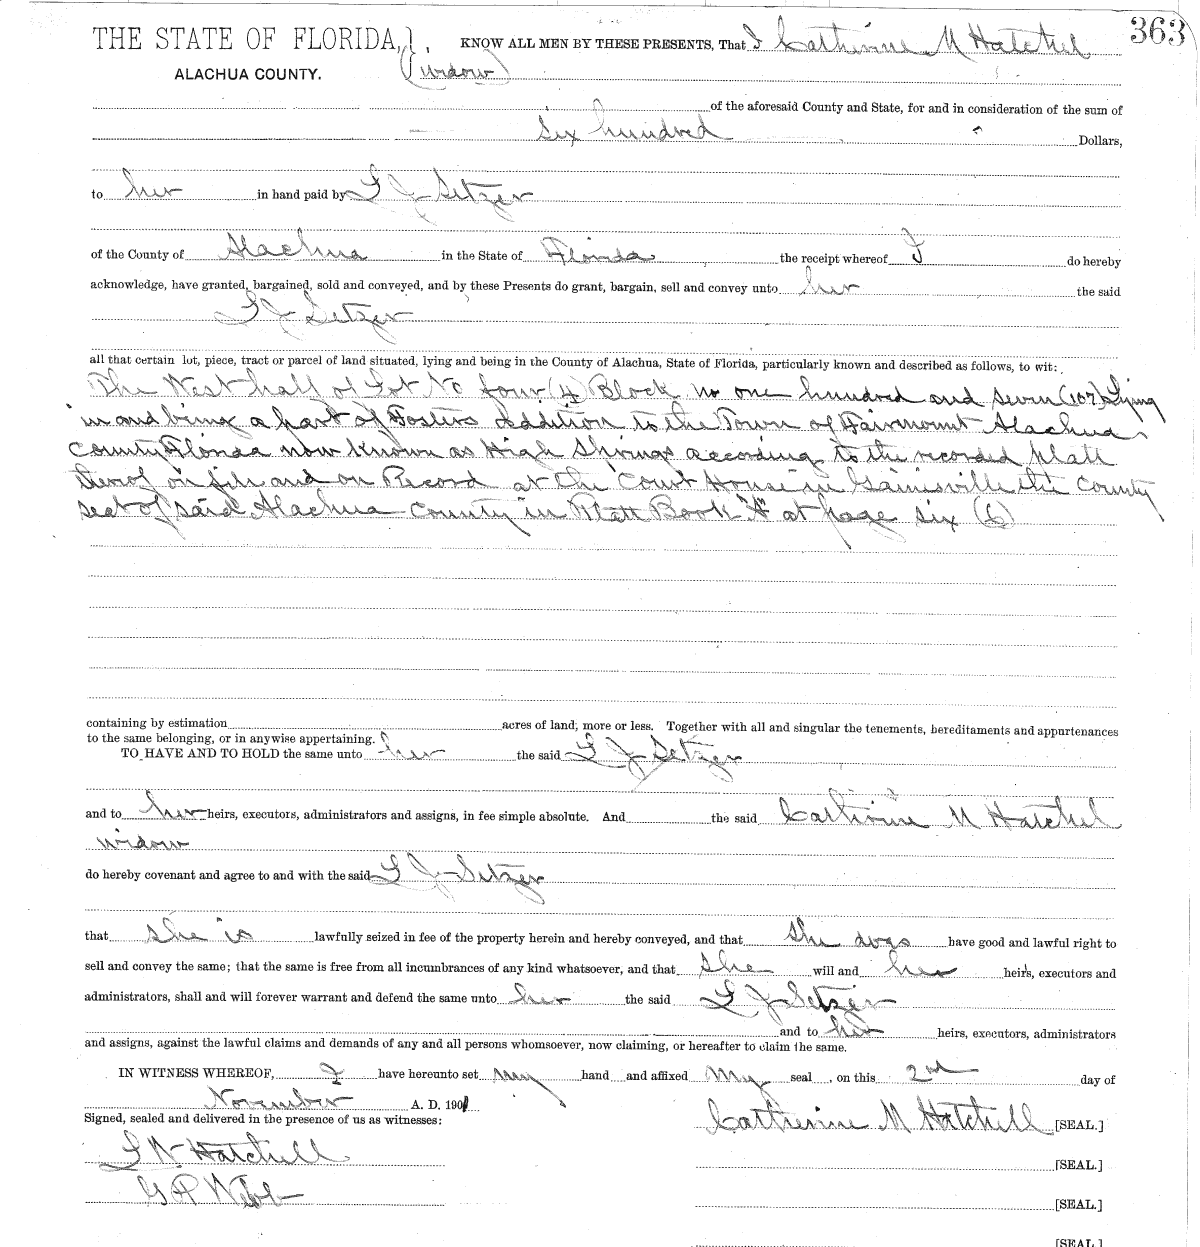 363
THE STATE OF FLORIDA,
ALACHUA COUNTY.
KNOW ALL MEN BY THESE PRESENTS, That I Catherine M Hatchel
(widow)
of the aforesaid County and State, for and in consideration of the sum of
Six hundred Dollars,
to her in hand paid by J Setzer
of the County of Alachua in the State of Florida the receipt whereof I do hereby
acknowledge, have granted, bargained, sold and conveyed, and by these Presents do grant, bargain, sell and convey unto her the said
J Setzer
all that certain lot, piece, tract or parcel of land situated, lying and being in the County of Alachua, State of Florida, particularly known and described as follows, to wit:
The West half of Lot No four (4) Block no one hundred and seven (107) Lying
in and being a part of Fosters addition to the Town of Fairmount Alachua
County Florida now known as High Springs according to the recorded platt
therof on file and on Record at the Court House in Gainisville the county
seat of said Alachua County in Platt Book "A" at page six (6)
containing by estimation acres of land; more or less. Together with all and singular the tenements, hereditaments and appurtenances
to the same belonging, or in anywise appertaining.
TO HAVE AND TO HOLD the same unto her the said J Setzer
and to her heirs, executors, administrators and assigns, in fee simple absolute. And the said Catherine M Hatchel
widow
do hereby covenant and agree to and with the said J Setzer
that she is lawfully seized in fee of the property herein and hereby conveyed, and that she does have good and lawful right to
sell and convey the same; that the same is free from all incumbrances of any kind whatsoever, and that she will and her heirs, executors and
administrators, shall and will forever warrant and defend the same unto her the said J Setzer
and to her heirs, executors, administrators
and assigns, against the lawful claims and demands of any and all persons whomsoever, now claiming, or hereafter to claim the same.
IN WITNESS WHEREOF, I have hereunto set my hand and affixed my seal, on this 2nd day of
November A. D. 1901
Signed, sealed and delivered in the presence of us as witnesses:
Catherine M Hatchell [SEAL.]
W Hatchell [SEAL.]
G P [SEAL.]
[SEAL.]